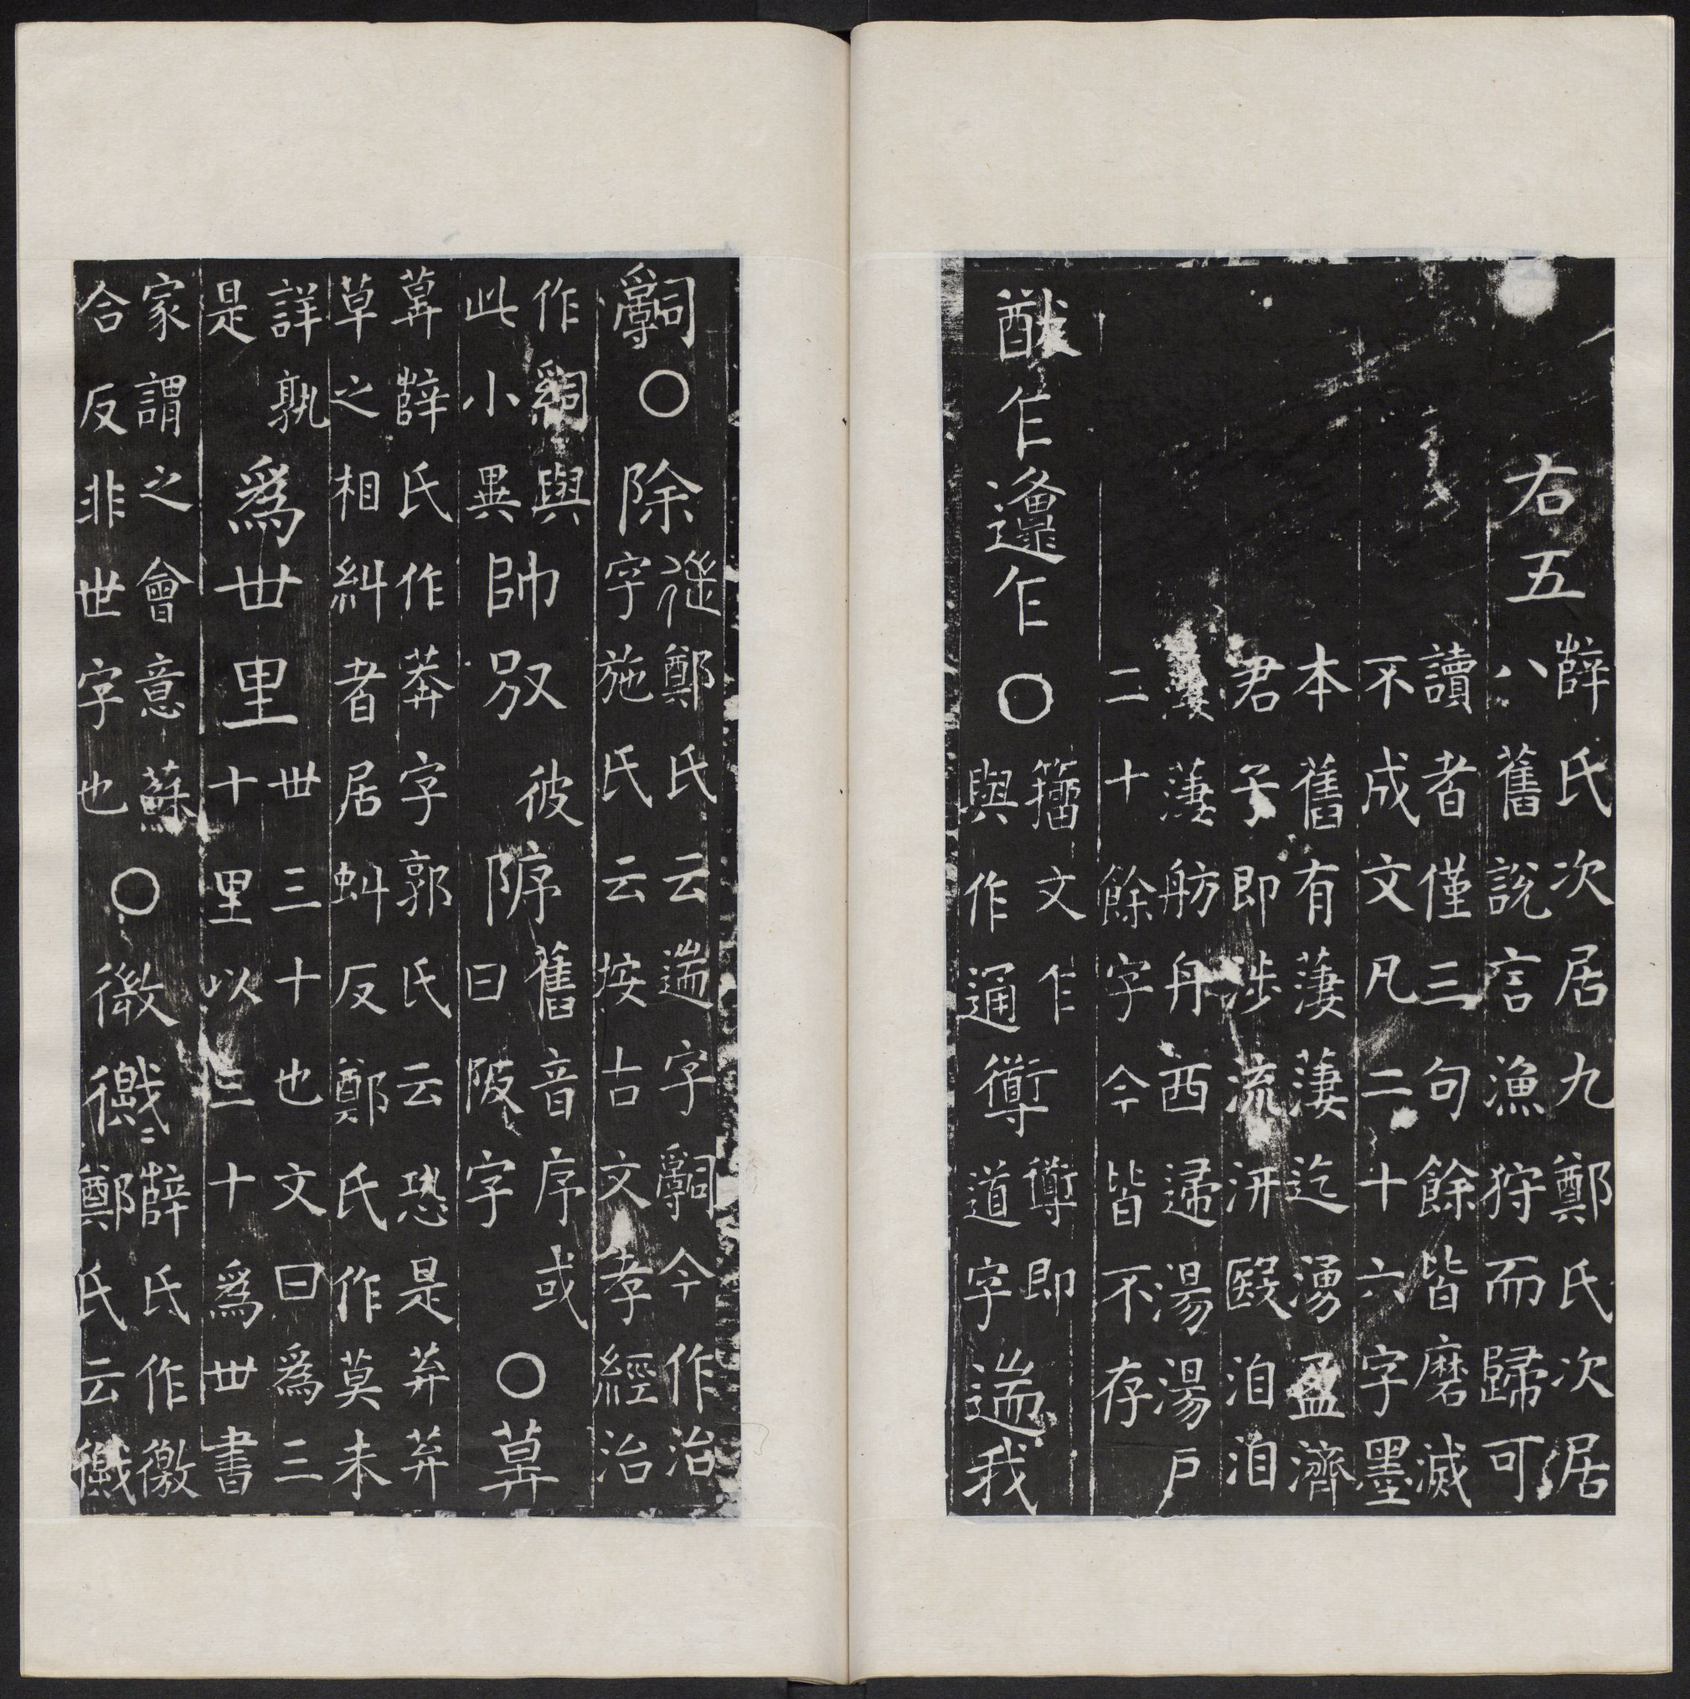 右五
薛氏次居九鄭氏次居
八舊說言漁狩而歸可
讀者僅三句餘皆磨滅
不成文凡二十六字墨
本舊有萋萋迄湧盈濟
君子即涉流汧殹洎洎
萋萋舫舟西逮湯湯戶
二十餘字今皆不存
猷乍邍乍○
籒文乍
與作通
𨗓
𨗓即
道字
遄我
𤔲○除
鄭氏云遄字𤔲今作治
字施氏云按古文孝經治
作𤔲與
此小異
帥
彼
舊音序或
曰阪字
○䓑
䓑薛氏作莽字郭氏云恐是莽莽
草之相糾者居虯反鄭氏作莫未
詳孰
是
為丗里
丗三十也文曰為三
十里以三十為丗書
家謂之會意蘇
合反非世字也
○徼
薛氏作徼
鄭氏云